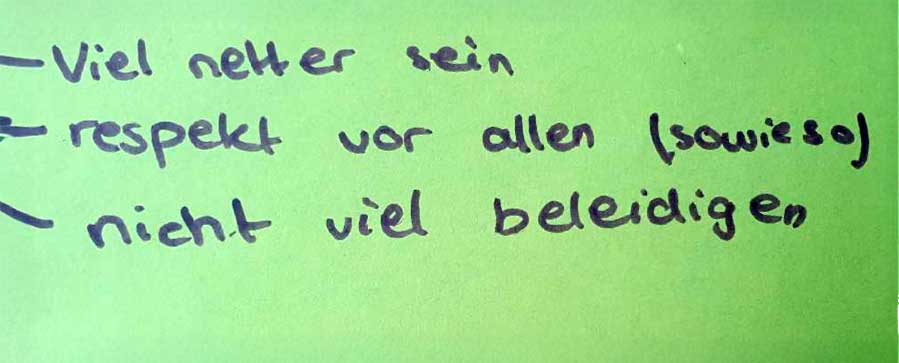 - Viel netter sein
- respekt vor allen (sowieso)
- nicht viel beleidigen